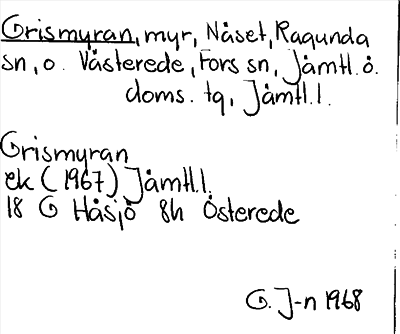 Grismyran, myr, Nåset, Ragunda
sn, o. Västerede, Fors sn, Jämtl. ö.
doms. tg, Jämtl. l.
Grismyran
ek (1967) Jämtl. l.
18 G Håsjö 8h Österede
G. J-n 1968